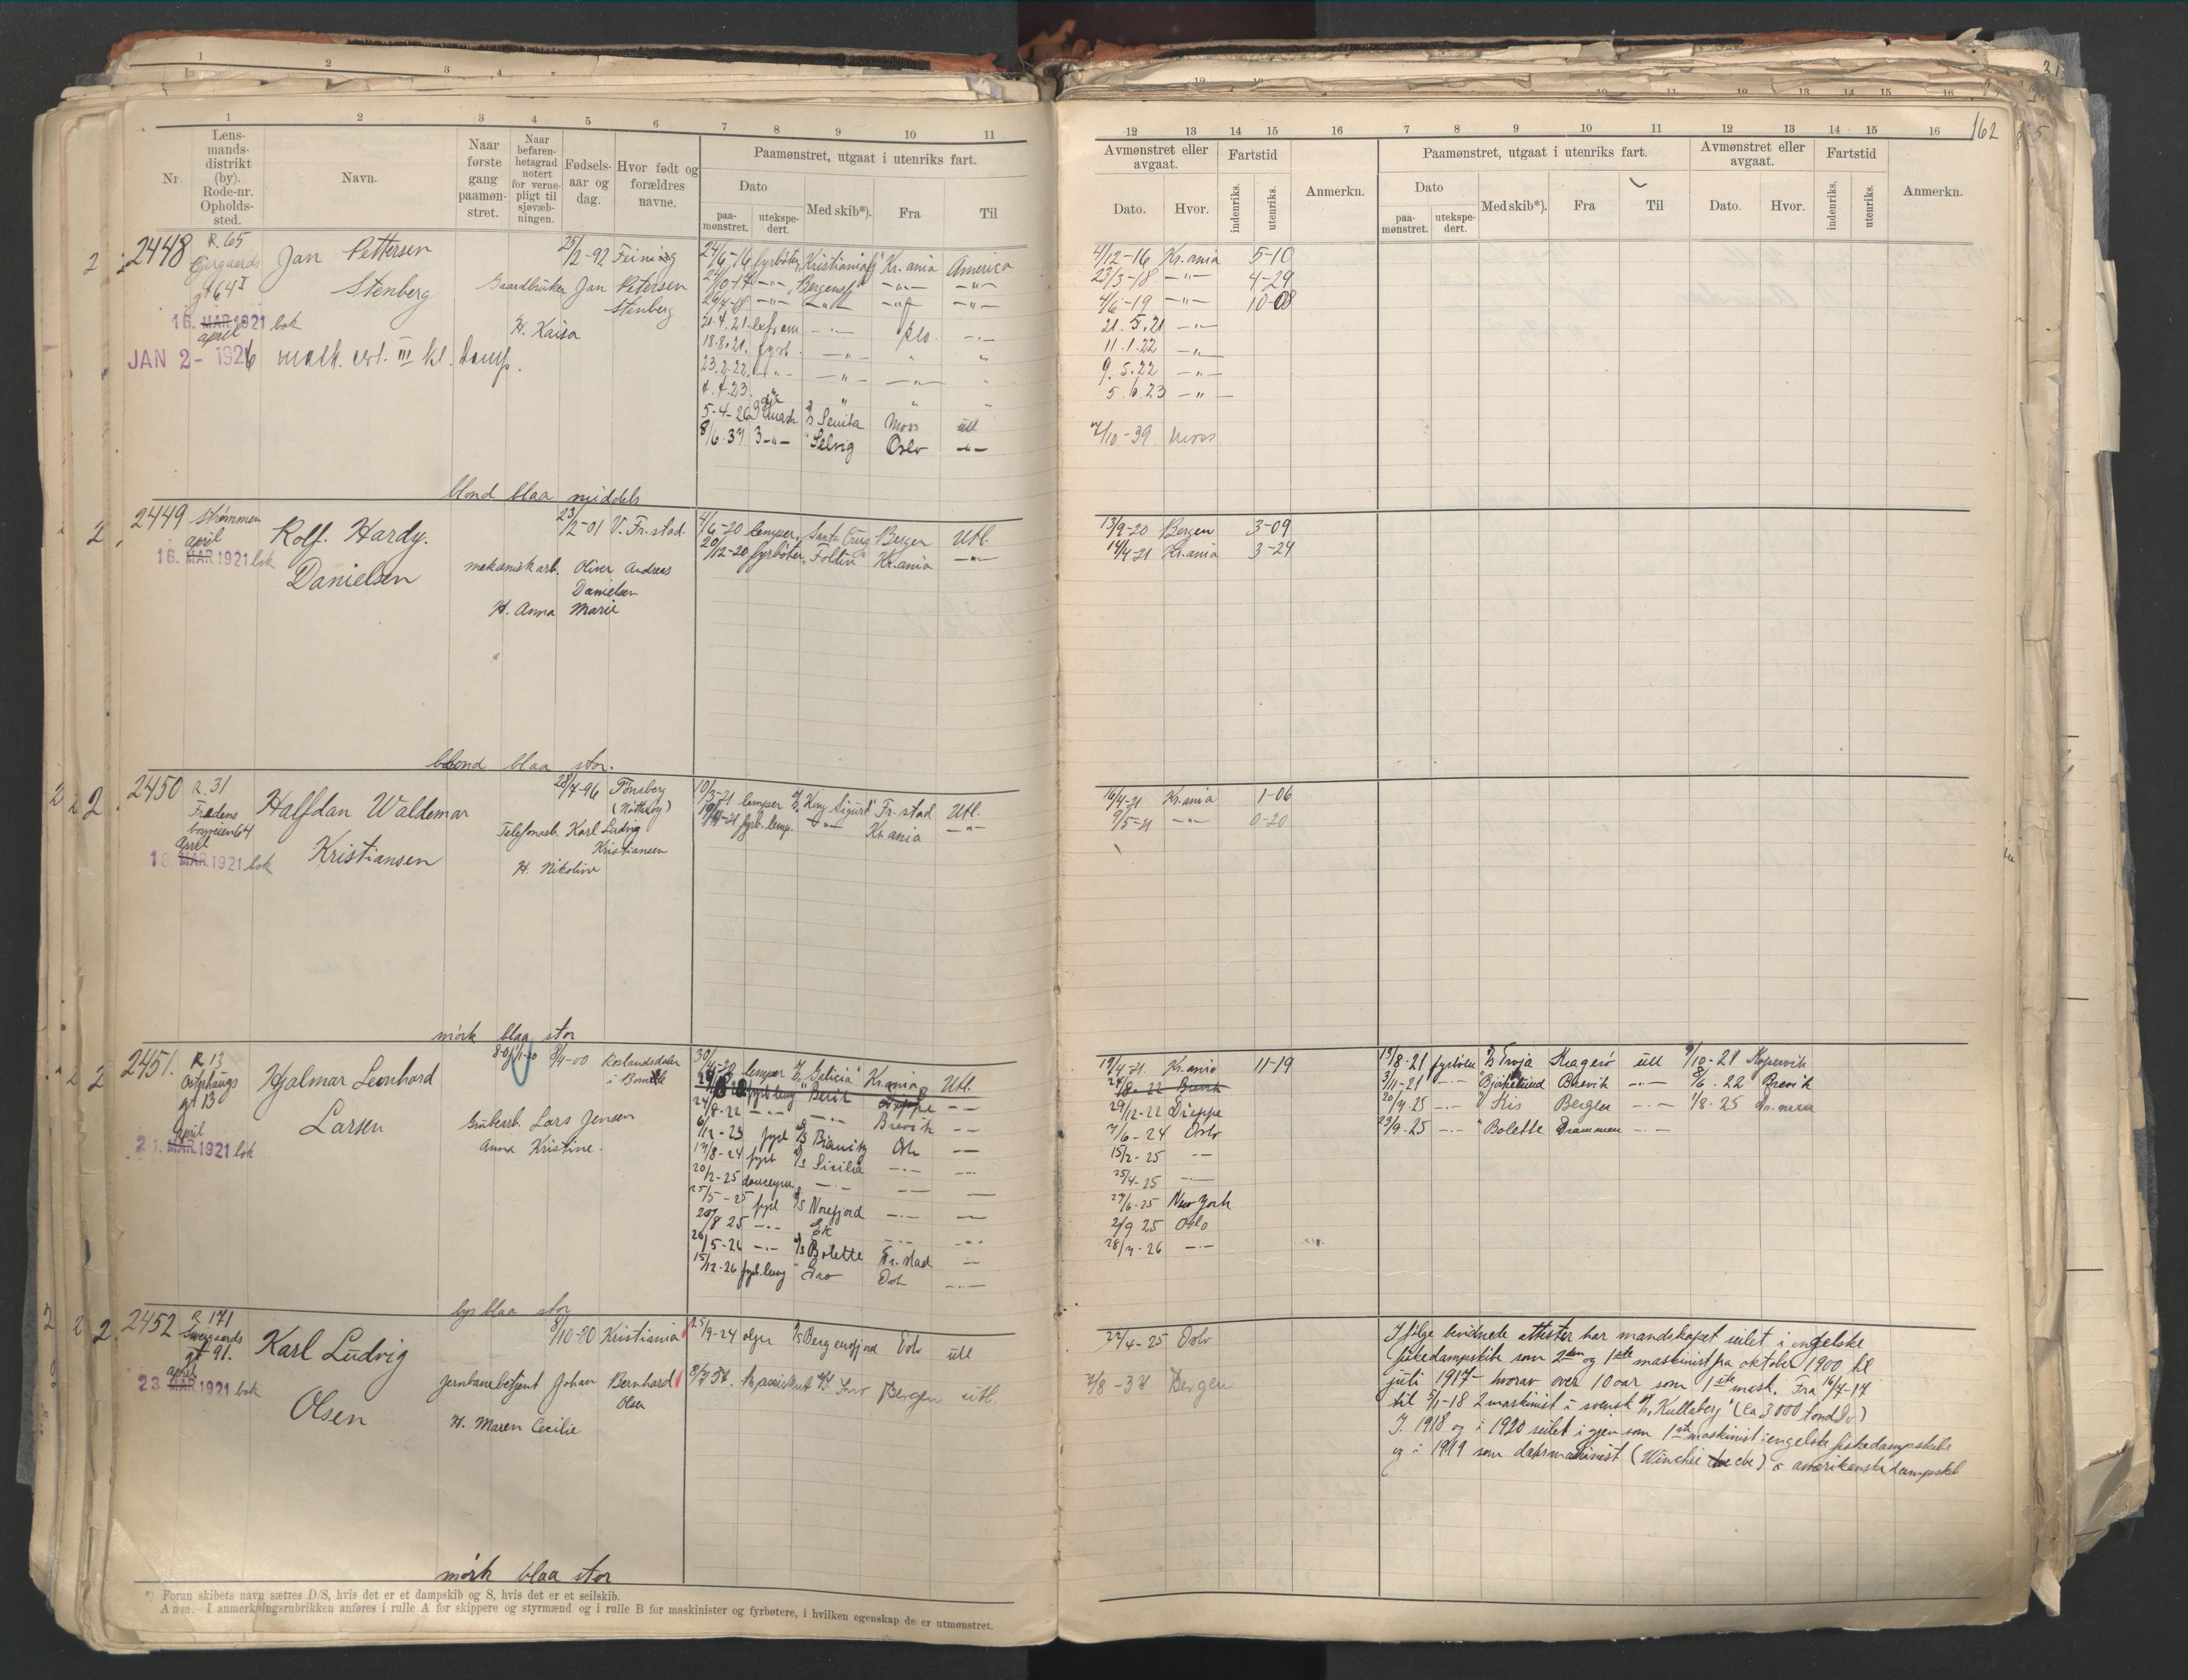 162
1 2 3 4 5 6 7 8 9 10 11
Nr.
Lens-
mands-
distrikt
(by).
Rode-nr.
Opholds-
sted.
Navn.
Naar
første
gang
paamøn-
stret.
Naar
befaren-
hetsgrad
notert
for verne-
pligt til
sjøvæb-
ningen.
Fødsels-
aar og
dag.
Hvor født og
forældres
navne.
Paamønstret, utgaat i utenriks fart.
Dato
paa-
mønstret.
utekspe-
dert.
Med skib*).
Fra
Til
12 13 14 15 16 7 8 9 10 11 12 13 14 15 16
Avmønstret eller
avgaat.
Dato.
Hvor.
Fartstid
indenriks.
utenriks.
Anmerkn.
Paamønstret, utgaat i utenriks fart.
Dato
paa-
mønstret.
utekspe-
dert.
Med skib*).
Fra
Til
Avmønstret eller
avgaat.
Dato.
Hvor.
Fartstid
indenriks.
utenriks.
Anmerkn.
2 2448 R. 65
Jan Pettersen
Stenberg
25/2-92
Gaardbruker Jan Petersen
Stenberg
H. Kaisa
16. MAR 1921 bok
april
JAN 2 - 1926 mask. cert. III kl. Damp.
24/6-16 fyrbøter Kristianiafj Kr.ania America
24/10-17 -"- Bergensfj -"- -"-
26/7-18 -"- -"- -"- -"-
21.4.21.
18.8.21. fyrb. -"- " "
23.2.22. -"- -"- -"-
4.4.23. " "
5-4-26 Moss utl
8/6.37 3-"- "Selvig Oslo -"-
4/12-16 Kr.ania 5-10
23/3-18 -"- 4-29
4/6-19 -"- 10-08
21.5.21 -"-
11.1.22 -"-
9.5.22 -"-
5.6.23 -"-
7/10-39 Moss
blond blaa middels
2 2449 Strømmen
april
16. MAR 1921 bok
Rolf. Hardy.
Danielsen
23/2-01 V. Fr.stad.
mekanisk arb. Oliver Andreas
Danielsen
H. Anna Marie
4/6-20 lemper Santa Cruz Bergen Utl.
20/12-20 fyrbøter "Foldin" Kr.ania -"-
13/9-20 Bergen 3-09
14/4-21 Kr.ania 3-24
blond blaa stor.
2 2450 R. 31
Fredens
borgveien 64
April
18. MAR 1921 bok
Halfdan Waldemar
Kristiansen
28/7-96 Tønsberg
(Nötterøy)
Telefonarb. Karl Ludvig
Kristiansen
H. Nikoline
10/3-21 lemper "Kong Sigurd" Fr.stad Utl.
19/4-21 fyrb.lemp. -"- Kr.ania -"-
16/4-21 Kr.ania 1-06
9/5-21 -"- 0-20
mørk blaa stor
2 2451. R. 13
gt 13
April
21. MAR 1921 bok
Hjalmar Leonhard
Larsen
8/4-00
i Bamble
Grubearb. Lars Jensen
Anna Kristine.
30/4-20 lemper "Galicia" Kr.ania Utl.
24/8-22 -"- -"- Brevik -"-
fyrb D/S Oslo -"-
13/8-24 fyrb D/S Sicilia -"- -"-
20/2-25 donkeym. -"- -"- -"-
25/5-25 fyrb D/S Norefjord -"- -"-
/8 25 -"- Ek -"- -"-
26/5-26 -"- D/S Bolette Fr.stad -"-
15/12-26 fyrb.lemp " Oslo -"-
19/4-21 Kr.ania 11-19
29/12-22 Dieppe
7/6-24 Oslo
15/2-25 -"-
25/4-25 -"-
29/6-25 New York
2/9 25 Oslo
28/7-26 -"-
19/8-21 fyrbøter D/S Troja Kragerø utl 9/10-21 Kopervik
3/11-21 -"- "Bjørkelund Brevik -"- 8/6.22 Brevik
20/7-25 -"- " Kis Bergen -"- 1/8-25
23/9-25 -"- " Bolette Drammen -"-
lys blaa stor
2 2452 R. 171
Sverigaards
gt 91.
april
23. MAR 1921 bok
Karl Ludvig
Olsen
8/10-80 Kristiania
Jernbanebetjent Johan Bernhard
Olsen
H. Maren Cecilie
25/9-24 D/S Bergensfjord Oslo utl
Bergen utl.
22/4-25 Oslo
7/8-37 Bergen
Ifølge bevidnede attester har mandskapet seilet i engelske
fiskedampskibe som 2den og 1ste maskinist fra oktober 1900 til
juli 1917 - hvorav over 10 aar som 1ste mask. Fra 16/7-17
til 5/1-18 2 maskinist i svensk D/S "Kullaberg" (ca 3000 tons Dv.)
I 1918 og i 1920 seilet igjen som 1ste maskinist i engelske fiskedampskibe
og i 1919 som dæksmaskinist i amerikanske dampskib
mørk blaa stor
*) Foran skibets navn sættes D/S, hvis det er et dampskib og S, hvis det er et seilskib.
Anm. I anmerkningsrubrikken anføres i rulle A for skippere og styrmænd og i rulle B for maskinister og fyrbøtere, i hvilken egenskap de er utmønstret.